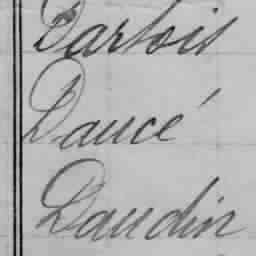 Dartois
Daucé
Daudin